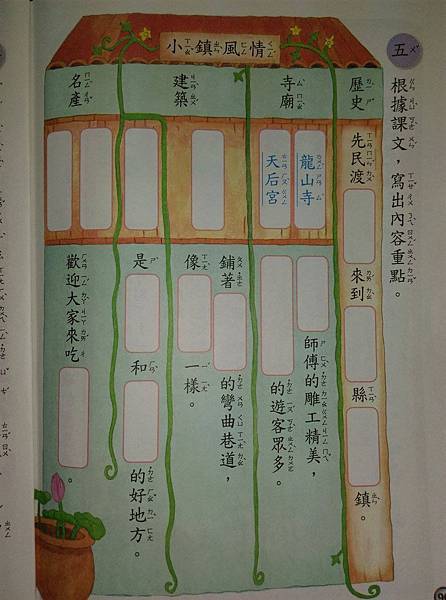 五
根據課文，寫出內容重點。
小鎮風情
歷史
先民渡
來到
縣
鎮。
寺廟
龍山寺
天后宮
師傅的雕工精美，
的遊客眾多。
建築
鋪著
的彎曲巷道，
像
一樣。
名產
是
和
的好地方。
歡迎大家來吃
。